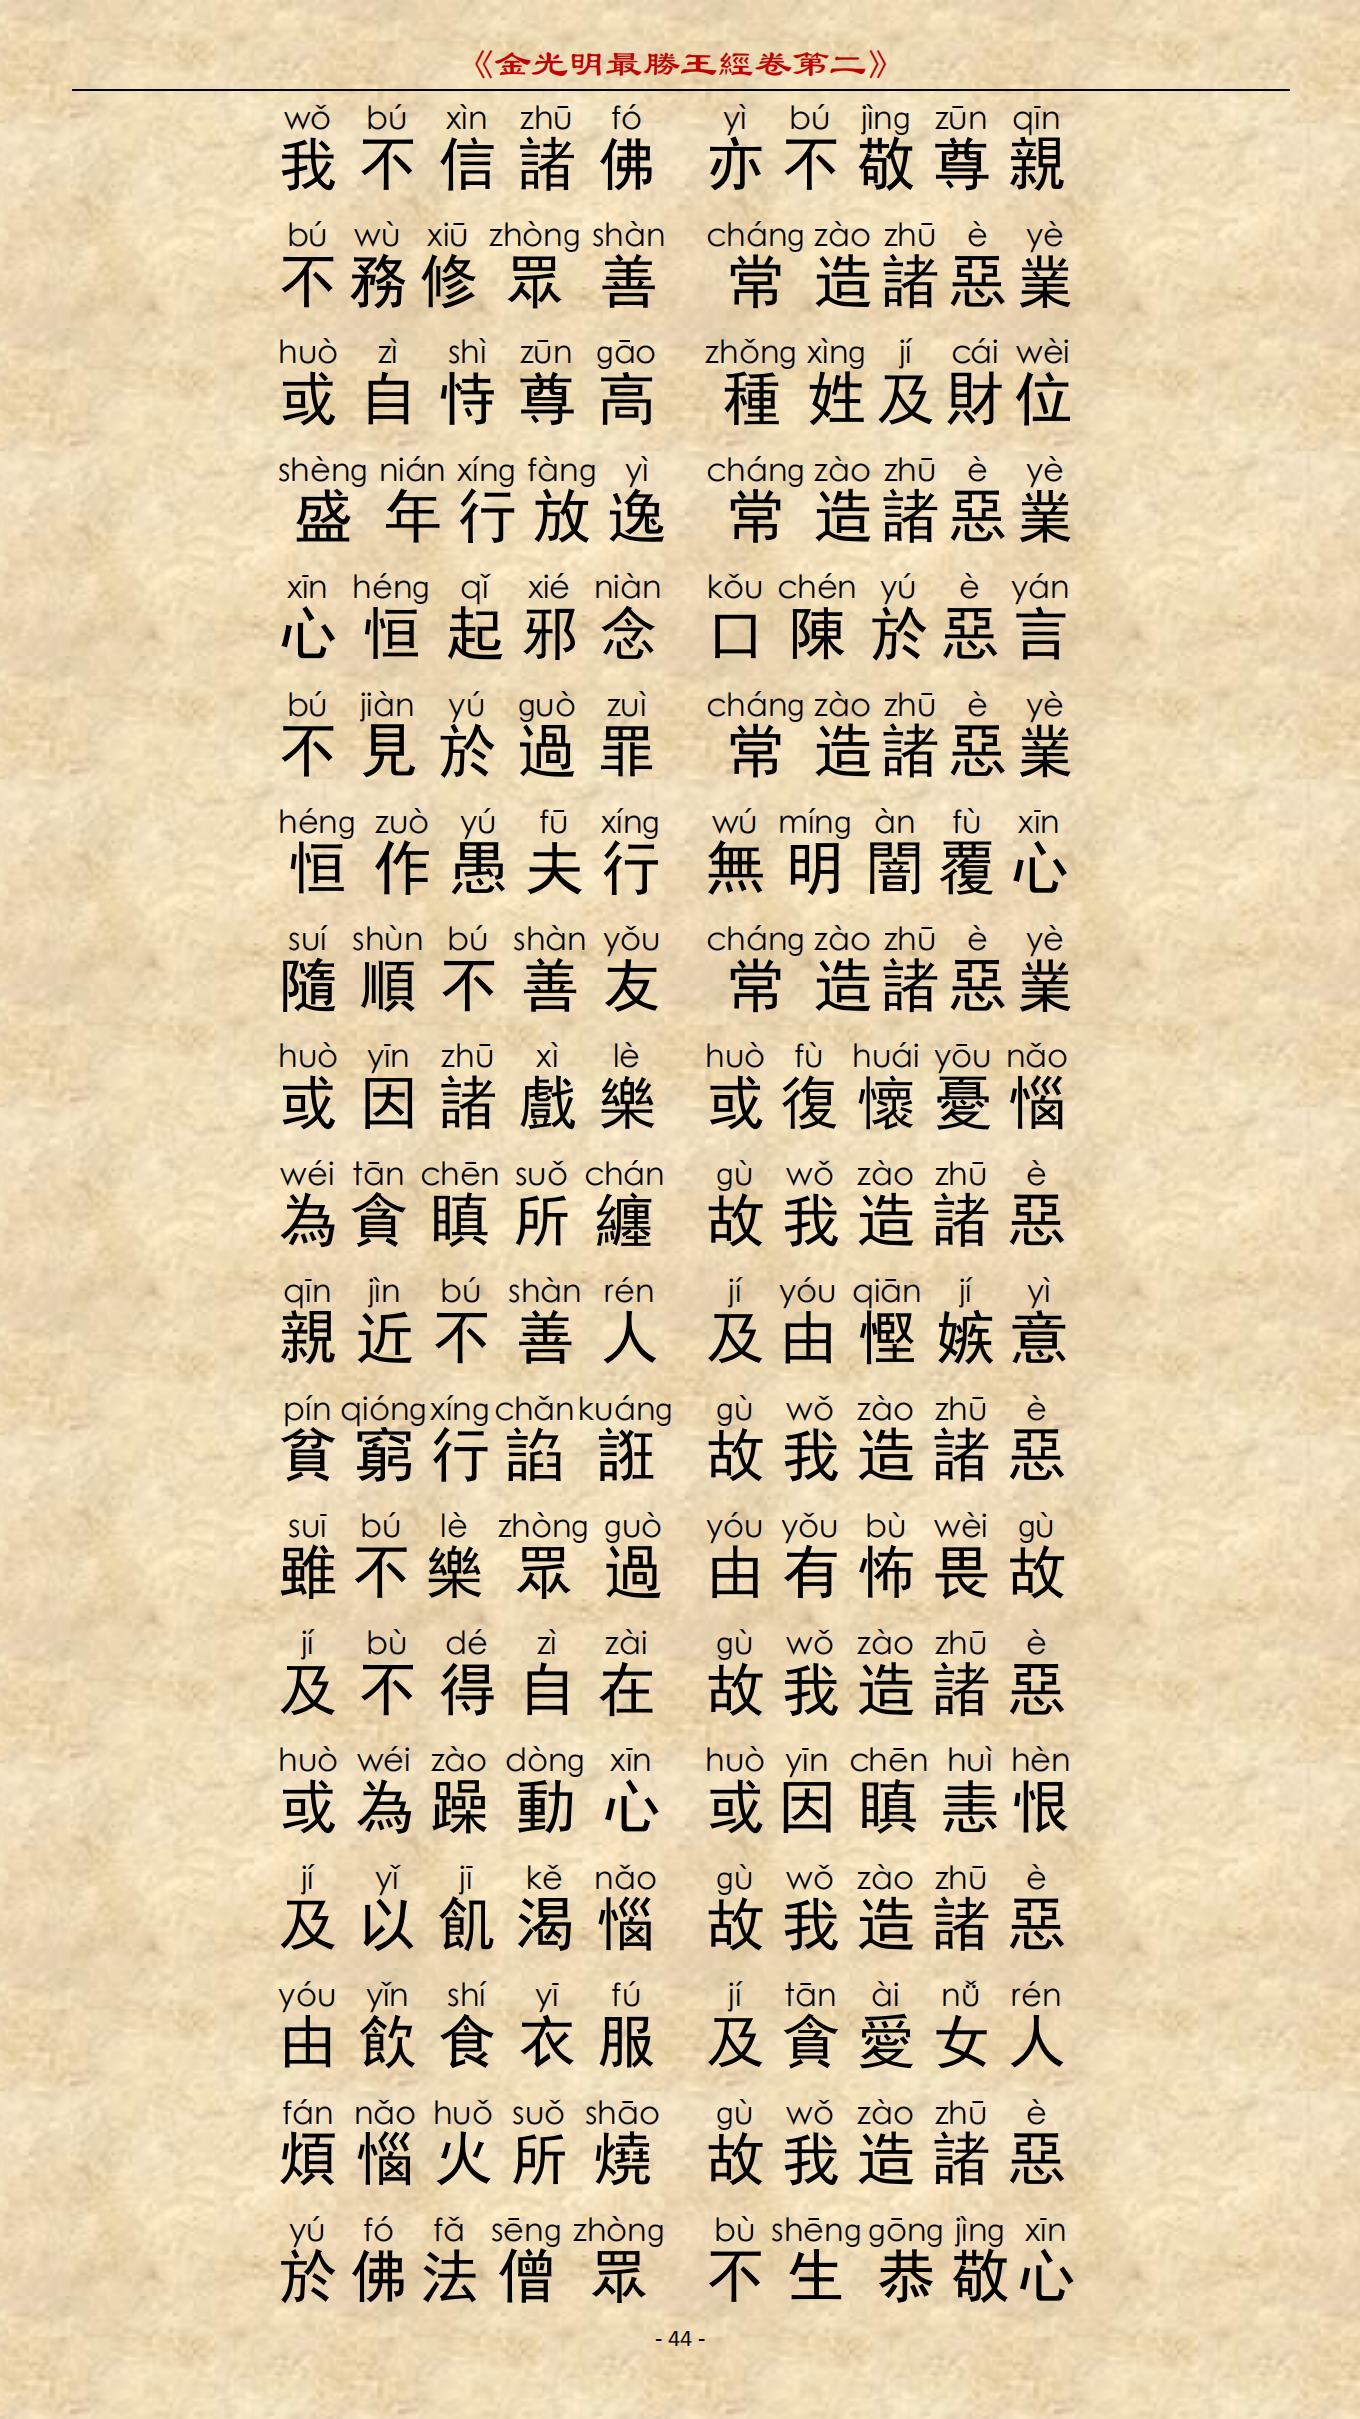 《金光明最勝王經卷第二》
wǒ bú xìn zhū fó yì bú jìng zūn qīn
我不信諸佛 亦不敬尊親
bú wù xiū zhòng shàn cháng zào zhū è yè
不務修眾善 常造諸惡業
huò zì shì zūn gāo zhǒng xìng jí cái wèi
或自恃尊高 種姓及財位
shèng nián xíng fàng yì cháng zào zhū è yè
盛年行放逸 常造諸惡業
xīn héng qǐ xié niàn kǒu chén yú è yán
心恒起邪念 口陳於惡言
bú jiàn yú guò zuì cháng zào zhū è yè
不見於過罪 常造諸惡業
héng zuò yú fū xíng wú míng àn fù xīn
恒作愚夫行 無明闇覆心
suí shùn bú shàn yǒu cháng zào zhū è yè
隨順不善友 常造諸惡業
huò yīn zhū xì lè huò fù huái yōu nǎo
或因諸戲樂 或復懷憂惱
wéi tān chēn suǒ chán gù wǒ zào zhū è
為貪瞋所纏 故我造諸惡
qīn jìn bú shàn rén jí yóu qiān jí yì
親近不善人 及由慳嫉意
pín qióng xíng chǎn kuáng gù wǒ zào zhū è
貧窮行諂誑 故我造諸惡
suī bú lè zhòng guò yóu yǒu bù wèi gù
雖不樂眾過 由有怖畏故
jí bù dé zì zài gù wǒ zào zhū è
及不得自在 故我造諸惡
huò wéi zào dòng xīn huò yīn chēn huì hèn
或為躁動心 或因瞋恚恨
jí yǐ jī kě nǎo gù wǒ zào zhū è
及以飢渴惱 故我造諸惡
yóu yǐn shí yī fú jí tān ài nǚ rén
由飲食衣服 及貪愛女人
fán nǎo huǒ suǒ shāo gù wǒ zào zhū è
煩惱火所燒 故我造諸惡
yú fó fǎ sēng zhòng bù shēng gōng jìng xīn
於佛法僧眾 不生恭敬心
- 44 -